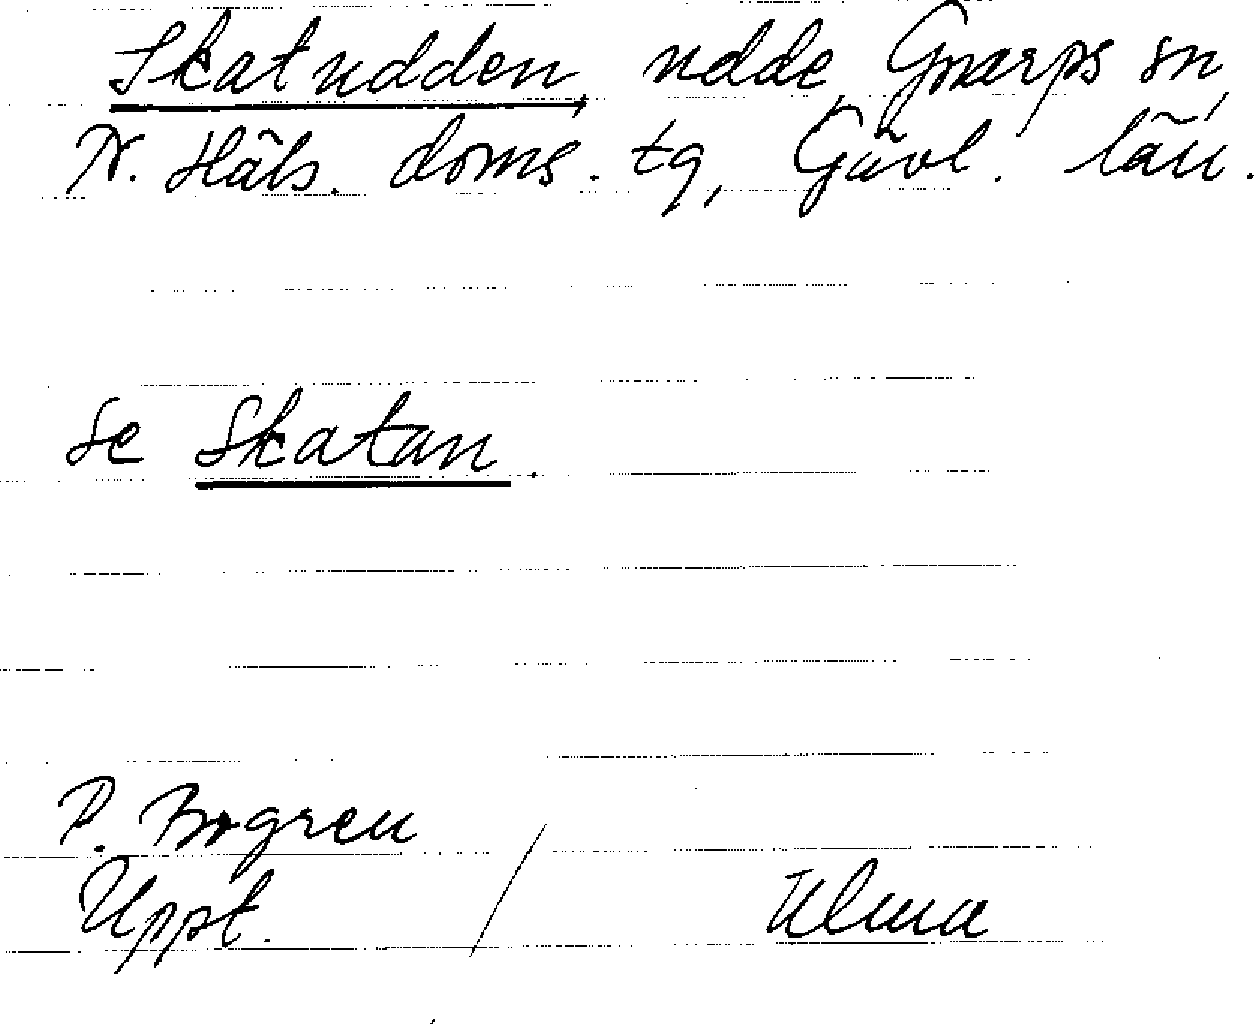 Skatudden, udde, Gnarps sn,
N. Häls. doms. tg, Gävl. län.
se Skatan.
P. Bogren
Uppt. / Ulma